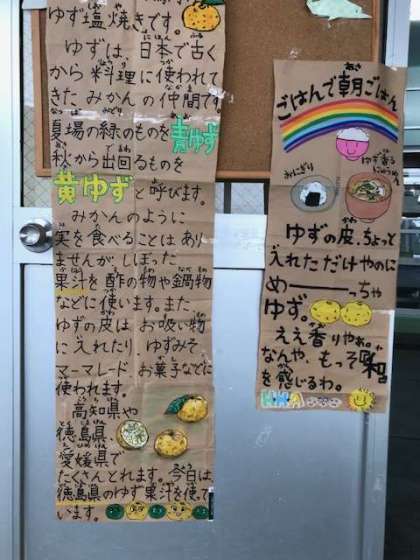 ゆず塩焼きです。
ゆずは、日本で古く
から料理に使われて
きたみかんの仲間です
夏場の緑のものを青ゆず
秋から出回るものを
黄ゆずと呼びます。
みかんのように
実を食べることはあり
ませんが、しぼった
果汁を酢の物や鍋物
などに使います。また、
ゆずの皮は、お吸い物
に入れたり、ゆずみそ、
マーマレード、お菓子などに
使われます。
高知県や
徳島県、
愛媛県で
たくさんとれます。今日は、
徳島県のゆず果汁を使って
います。
ごはんで朝ごはん
おにぎり
ゆず香る
ゆずの皮、ちょって
入れただけやのに
めーーーっちゃ
ゆず。
ええ香りやぁ。
なんや、もっそ『和』
を感じるわ。